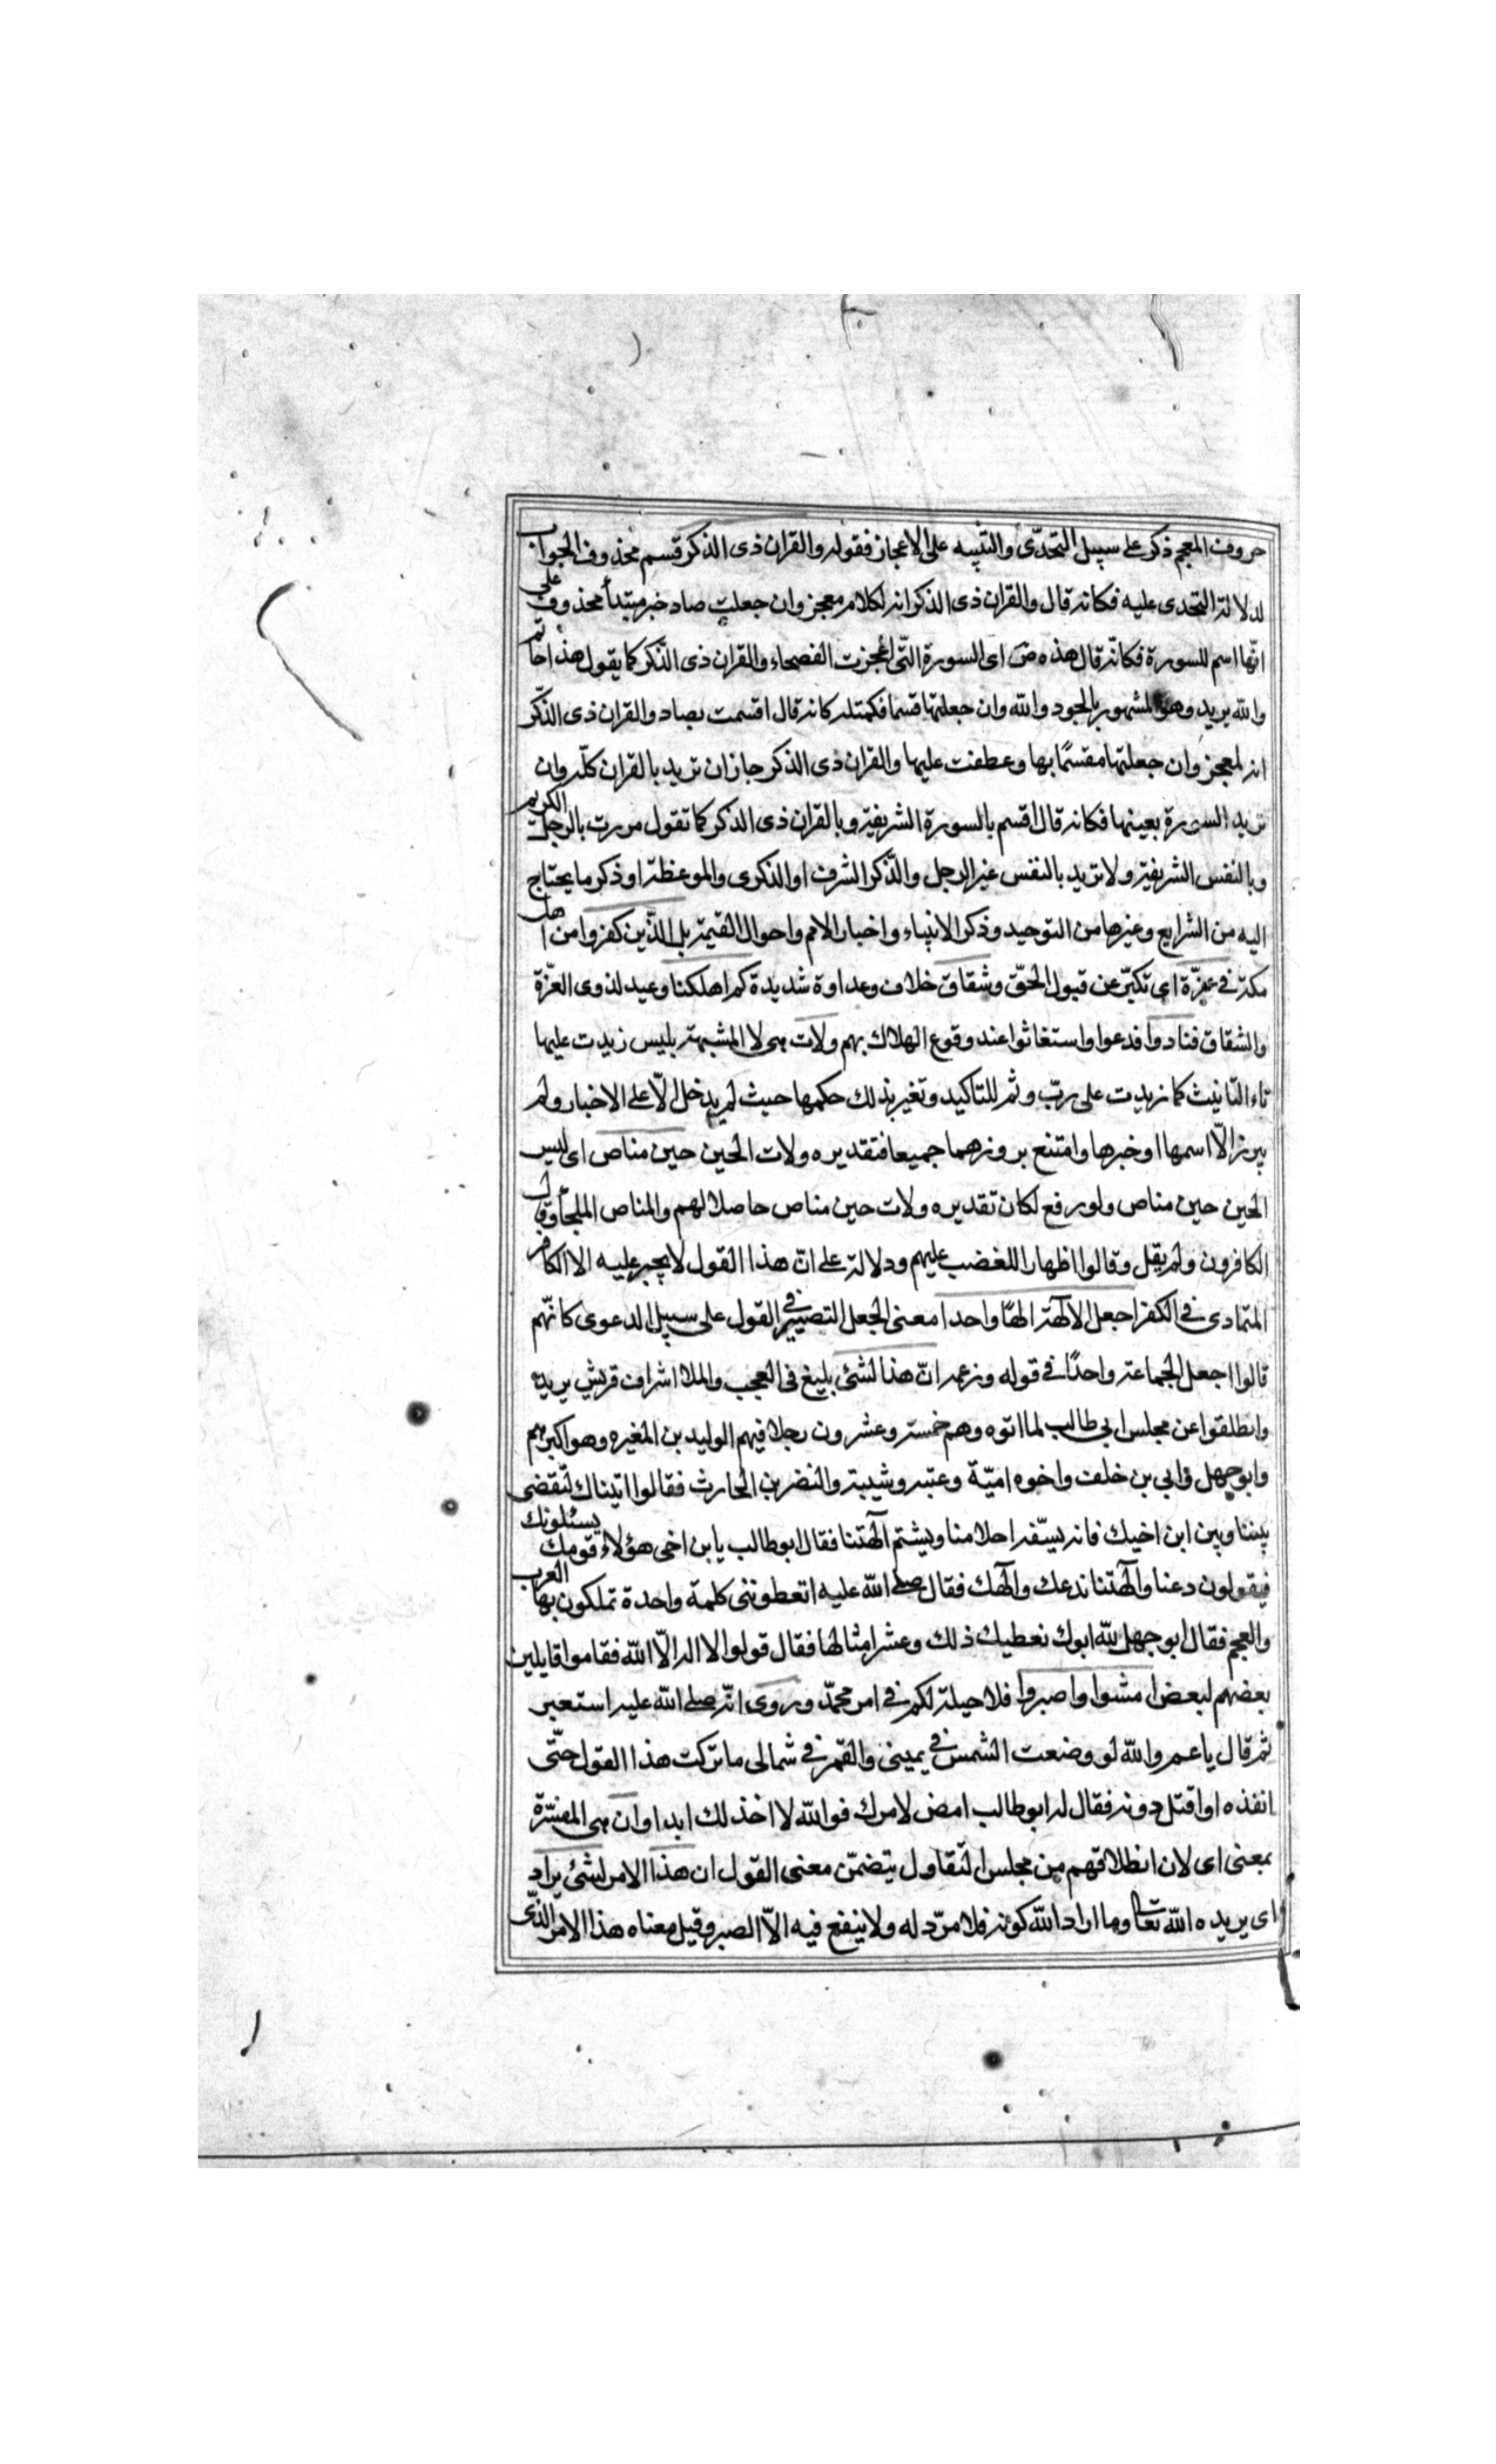 حروف المعجم ذكر على سبيل التحدّى والتنبيه على الاعجاز فقوله والقران ذى الذكر قسم محذوف الجواب
لدلالة التحدى عليه فكانه قال والقران ذى الذكر انه لكلام معجز وان جعلت صاد خبر مبتدأ محذوف على
انّها اسم للسورة فكانّه قال هذه ص اى السورة التّى اعجزت الفصحاء والقران ذى الذّكر كما يقول هذا حاتم
والله يريد وهو المشهور بالجود والله وان جعلتها قسما فكمثله كانه قال اقسمت بصاد والقران ذى الذّكر
انه لمعجز وان جعلتها مقسمًا بها وعطفت عليها والقران ذى الذكر جاز ان تريد بالقران كلّه وان
تريد السورة بعينها فكانه قال اقسم بالسورة الشريفة وبالقران ذى الذكر كما تقول مررت بالرجل الكريم
وبالنفس الشريفة ولا تريد بالنفس غير الرجل والذّكر الشرف او الذكرى والموعظة او ذكر ما يحتاج
اليه من الشرايع وغيرها من التوحيد وذكر الانبياء واخبار الامم واحوال القيمة بل الذّين كفروا من اهل
مكة فى عزّة اى تكبّر عن قبول الحقّ وشقاق خلاف وعداوة شديدة كم اهلكنا وعيد لذوى العزّة
والشقاق فنادوا فدعوا واستغاثوا عند وقوع الهلاك بهم ولات هى لا المشبهة بليس زيدت عليها
تاء التّانيث كما زيدت على ربّ وثم للتاكيد وتغير بذلك حكمها حيث لم يدخل الّا على الاخبار ولم
يبرز الّا اسمها او خبرها وامتنع بروزهما جميعا فتقديره ولات الحين حين مناص اى ليس
الحين حين مناص ولو رفع لكان تقديره ولات حين مناص حاصلا لهم والمناص الملجأ وقال
الكافرون ولم يقل وقالوا اظهارا للغضب عليهم ودلالة على انّ هذا القول لا يجبر عليه الا الكافر
المتمادى فى الكفر اجعل الالهة الهًا واحدا معنى الجعل التصيير فى القول على سبيل الدعوى كانّهم
قالوا اجعل الجماعة واحدًا فى قوله وزعمه انّ هذا لشئ بليغ فى العجب والملا اشراف قريش يريد
وانطلقوا عن مجلس ابى طالب لما اتوه وهم خمسة وعشرون رجلا فيهم الوليد بن المغيره وهو اكبرهم
وابو جهل وابى بن خلف واخوه اميّة وعتبه وشيبة والنضر بن الحارث فقالوا اتيناك لتقضى
بيننا وبين ابن اخيك فانه يسفّه احلامنا ويشتم آلهتنا فقال ابو طالب يا بن اخى هؤلاء قومك يسئلونك
فيقولون دعنا وآلهتنا ندعك والهك فقال صلى الله عليه اتعطوننى كلمة واحدة تملكون بها العرب
والعجم فقال ابو جهل لله ابوك نعطيك ذلك وعشر امثالها فقال قولوا لا اله الّا الله فقاموا قايلين
بعضهم لبعض امشوا واصبروا فلا حيلة لكم فى امر محمّد وروى انّه صلى الله عليه استعبر
ثم قال يا عم والله لو وضعت الشمس فى يمينى والقمر فى شمالى ما تركت هذا القول حتّى
انفذه او اقتل دونه فقال له ابو طالب امض لامرك فو الله لا اخذلك ابدا وان هى المفسّرة
بمعنى اى لان انطلاقهم من مجلس التقاول يتضمّن معنى القول ان هذا الامر لشئ يراد
اى يريده الله تعالى وما اراد الله كونه فلا مردّ له ولا ينفع فيه الاّ الصبر وقيل معناه هذا الامر الذّى